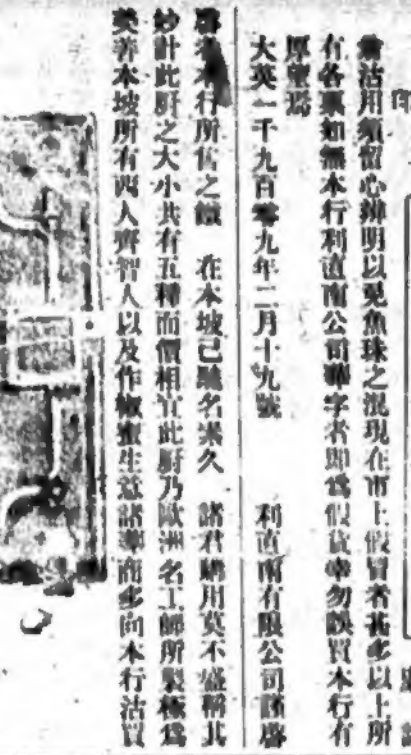 印
沽用須留心辨明以免魚珠之混現在市上假冒者甚多以上所
有各裝如無本行利直南公司聯字者即爲假貨幸勿誤買本行有
厚望焉
大英一千九百零九年二月十九號 利直南有限公司謹啓
本行所售之 在本坡已馳名業久 諸君購用莫不盛稱其
妙計此廚之大小共有五種而價相宜此廚乃歐洲名工師所製極爲
美善本坡所有西人齊智人以及作 蜜生意諸 商多向本行沽買